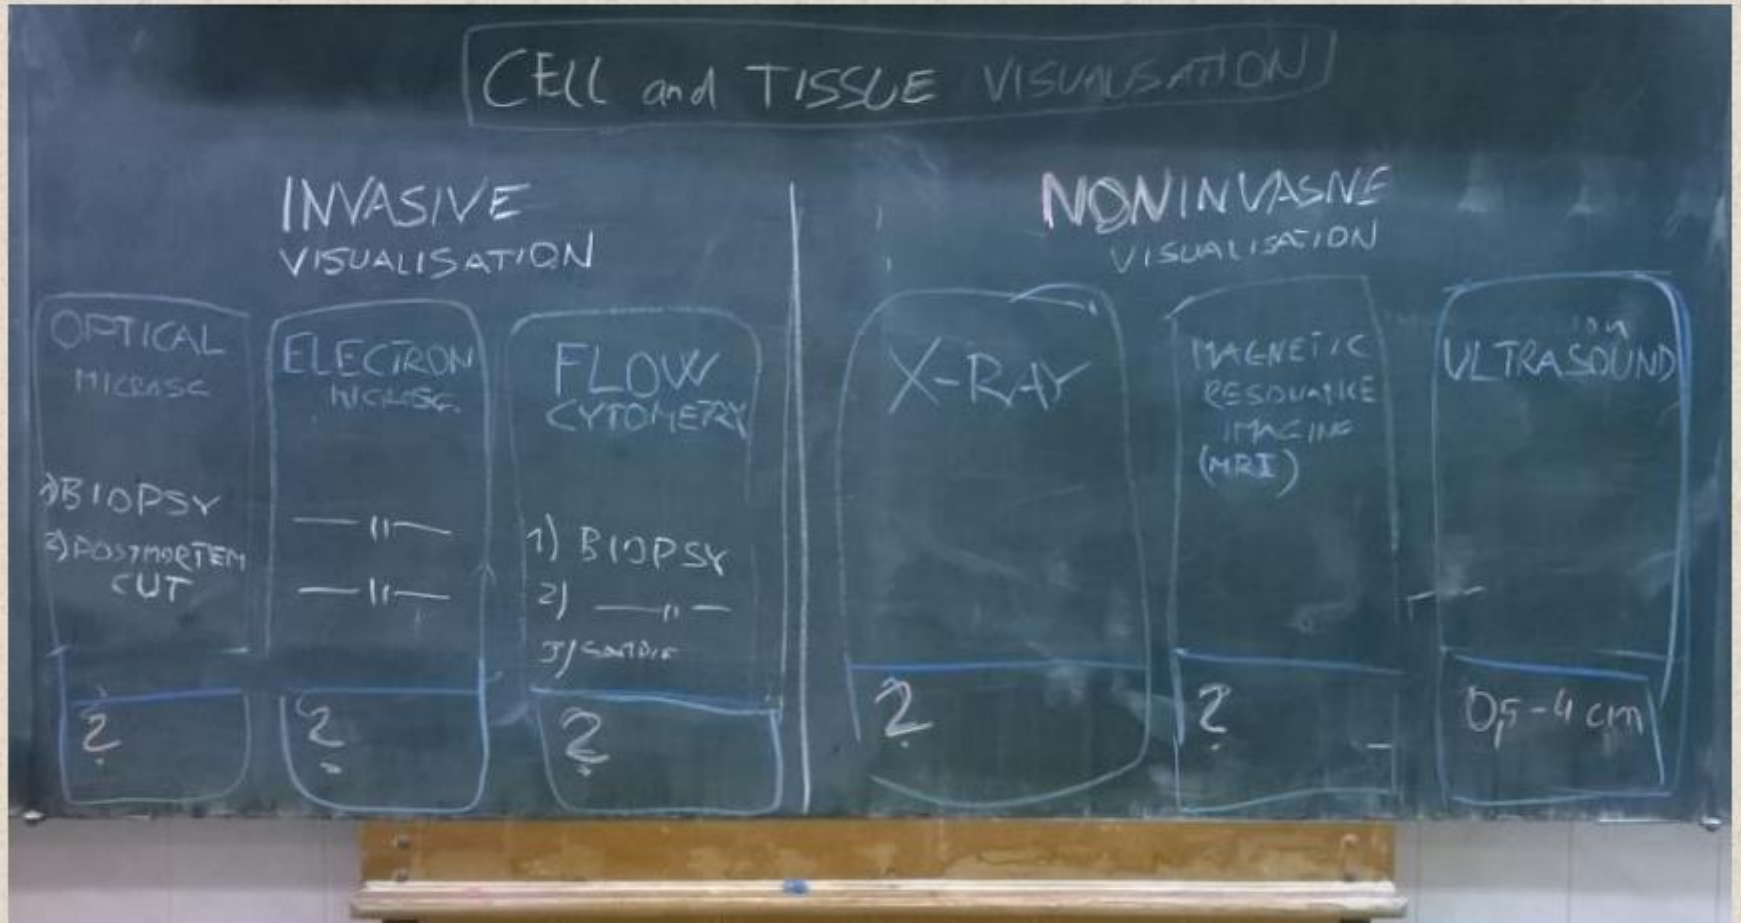 CELL and TISSUE VISUALISATION
INVASIVE
VISUALISATION
NONINVASIVE
VISUALISATION
OPTICAL
MICROSC
1) BIOPSY
2) POSTMORTEM
CUT
?
ELECTRON
MICROSC.
— 〃 —
— 〃 —
?
FLOW
CYTOMETRY
1) BIOPSY
2) — 〃 —
3)
?
X-RAY
?
MAGNETIC
RESONANCE
IMAGING
(MRI)
?
ULTRASOUND
0,5-4 cm